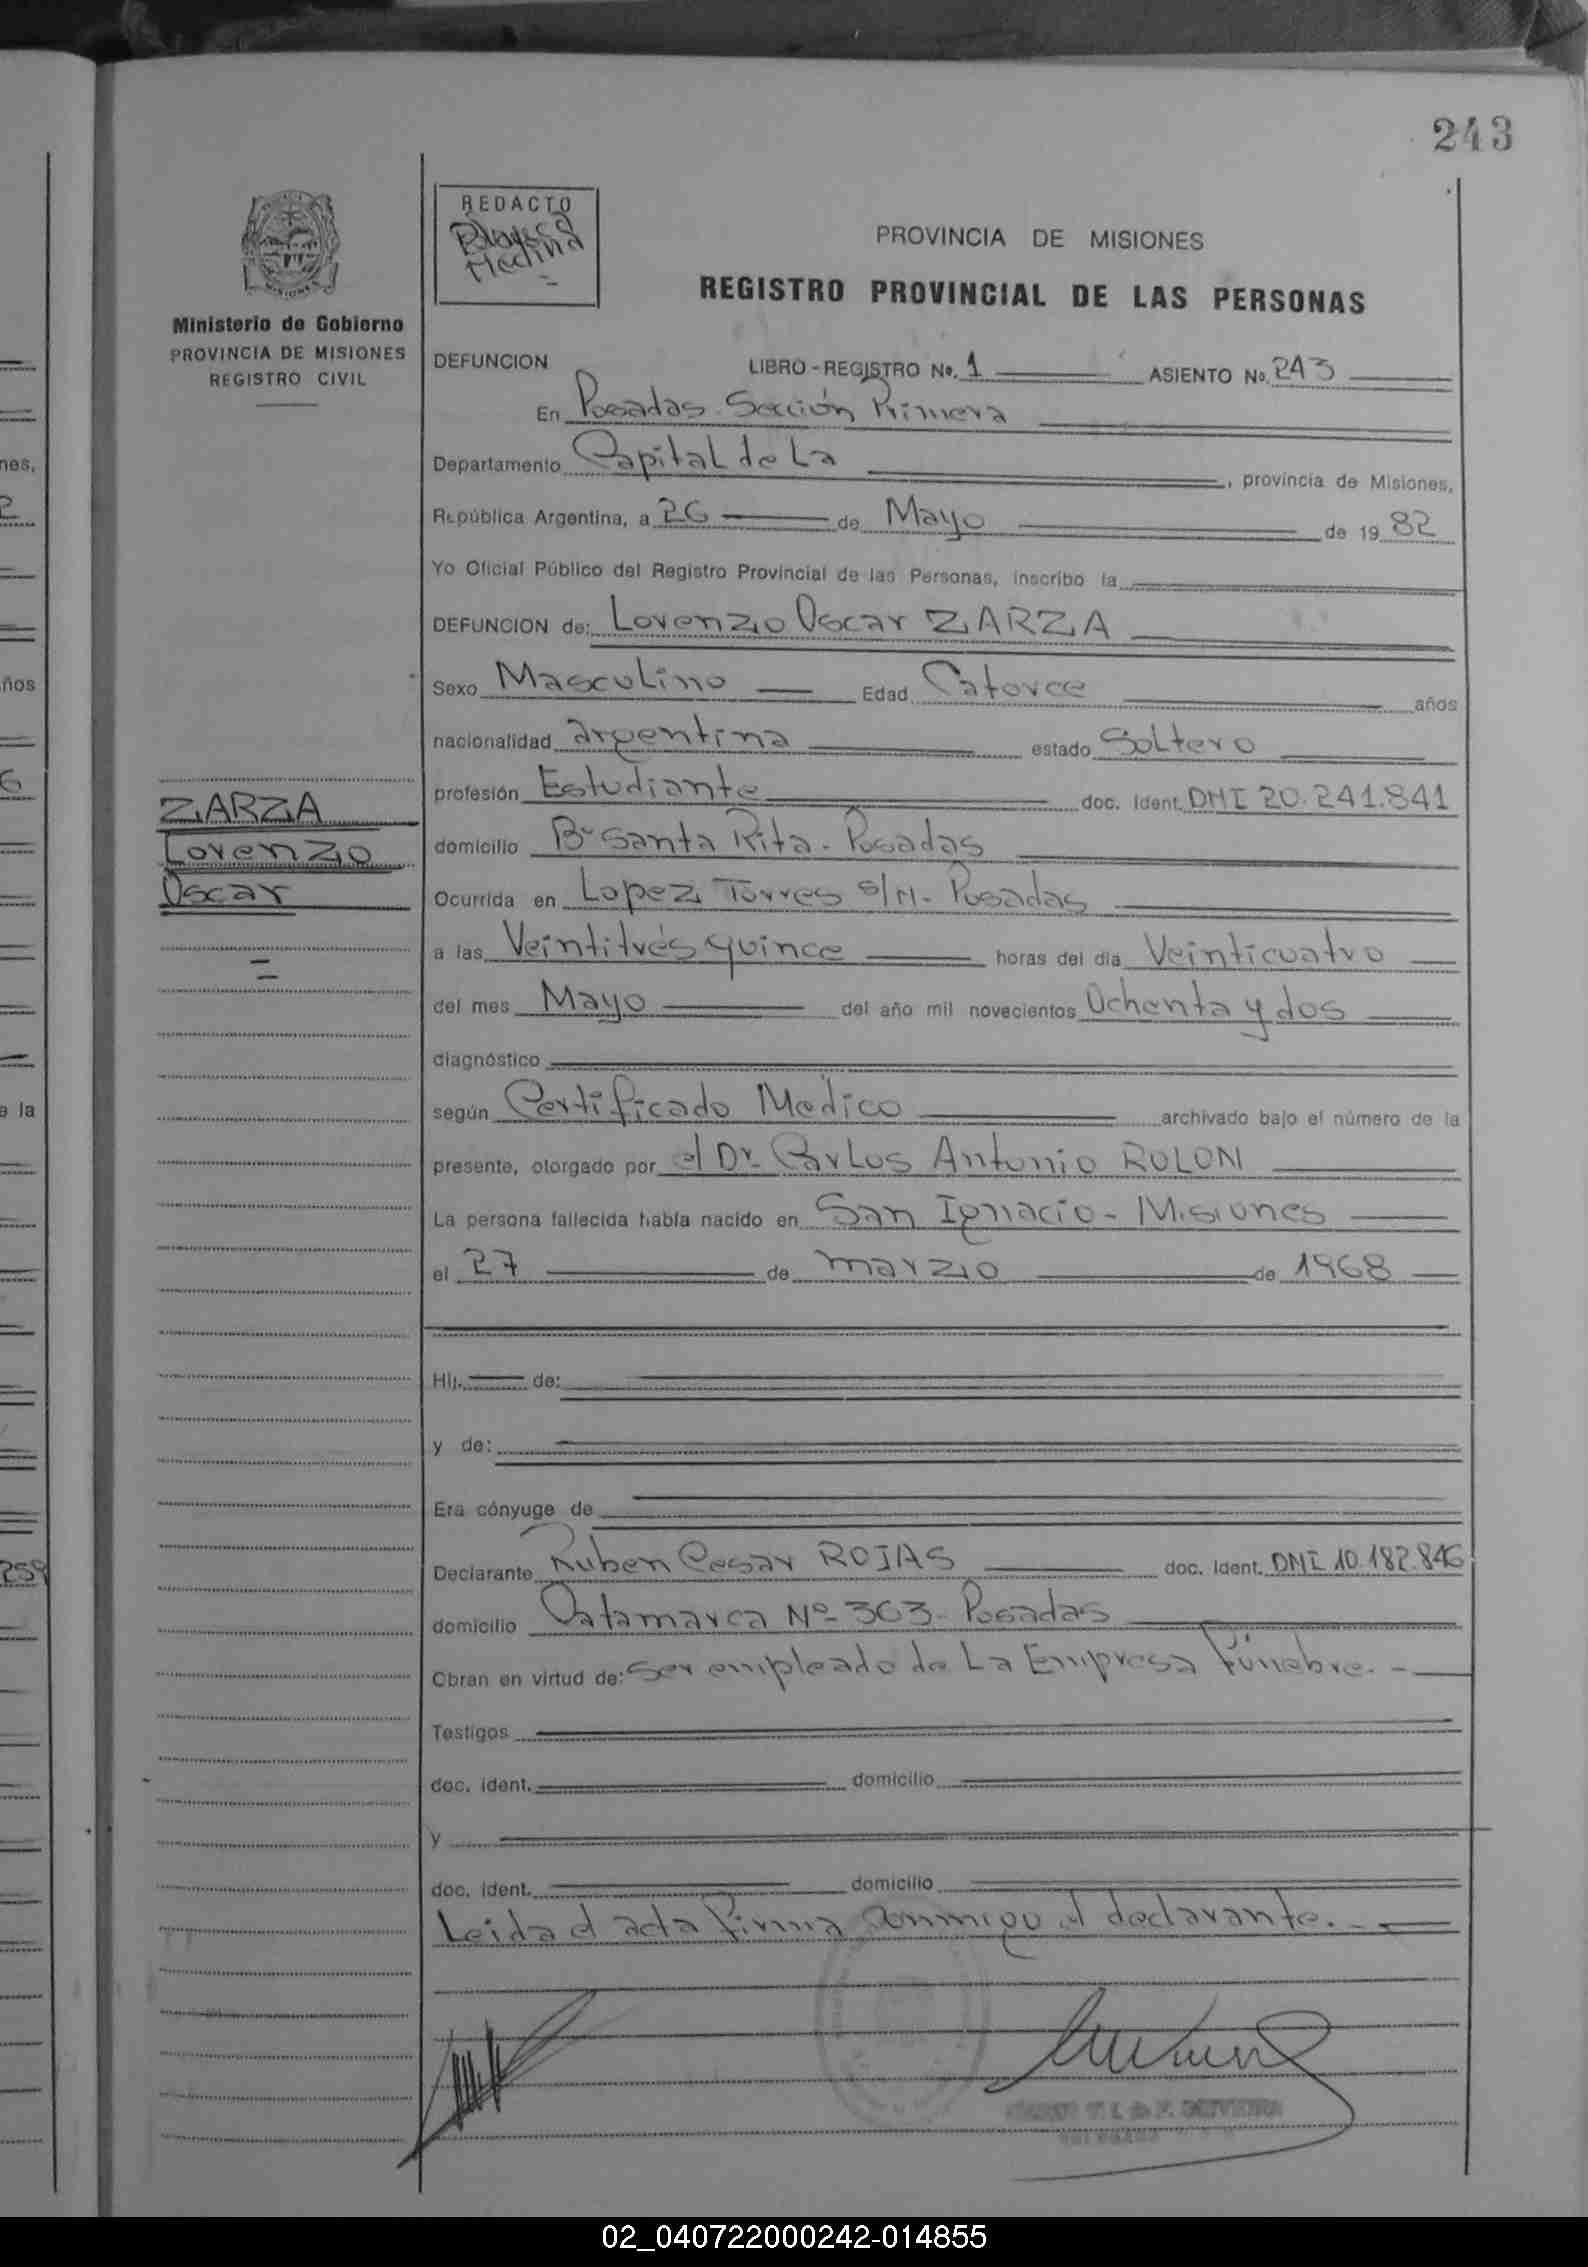 243
REDACTO
Medina
PROVINCIA DE MISIONES
REGISTRO PROVINCIAL DE LAS PERSONAS
MISIONES
Ministerio de Gobierno
PROVINCIA DE MISIONES
REGISTRO CIVIL
DEFUNCION LIBRO - REGISTRO No. 1 ASIENTO No. 243
En Posadas. Sección Primera
Departamento Capital de La , provincia de Misiones,
República Argentina, a 26 de Mayo de 19 82
Yo Oficial Público del Registro Provincial de las Personas, inscribo la
DEFUNCION de: Lorenzo Oscar ZARZA
Sexo Masculino Edad Catorce años
nacionalidad argentina estado Soltero
profesión Estudiante doc. Ident. DNI 20.241.841
ZARZA
Lorenzo
Oscar
domicilio Bº Santa Rita - Posadas
Ocurrida en Lopez Torres s/n - Posadas
a las Veintitrés quince horas del día Veinticuatro
del mes Mayo del año mil novecientos Ochenta y dos
diagnóstico
según Certificado Medico archivado bajo el número de la
presente, otorgado por el Dr. Carlos Antonio ROLON
La persona fallecida había nacido en San Ignacio - Misiones
el 27 de marzo de 1968
Hij. de:
y de:
Era cónyuge de
Declarante Ruben Cesar ROJAS doc. Ident. DNI 10.182.846
domicilio Catamarca Nº 363 - Posadas
Obran en virtud de: Ser empleado de La Empresa Fúnebre. -
Testigos
doc. ident. domicilio
y
doc. ident. domicilio
Leida el acta firma conmigo el declarante. -
nes,
2
ños
6
e la
259
02_040722000242-014855